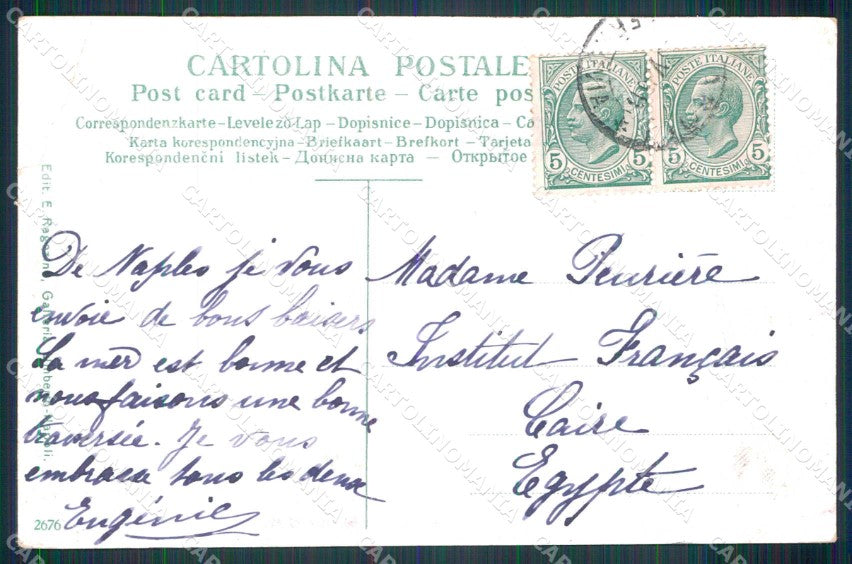 CARTOLINA POSTALE
Post card – Postkarte – Carte pos
Correspondenzkarte – Levelező-Lap – Dopisnice – Dopisnica – Ca
Karta korespondencyjna – Briefkaart – Brefkort – Tarjeta
Korespondenční listek – Дописна карта – Открытое
POSTE ITALIANE
5 CENTESIMI 5
POSTE ITALIANE
5 CENTESIMI 5
De Naples je vous
envoie de bons baisers
La mer est bonne et
nous faisons une bonne
traversée. Je vous
embrasse tous les deux
Eugénie
Madame Peurière
Institut Français
Caire
Egypte
Edit. E. Galleria
2676
CARTOLINOMANIA